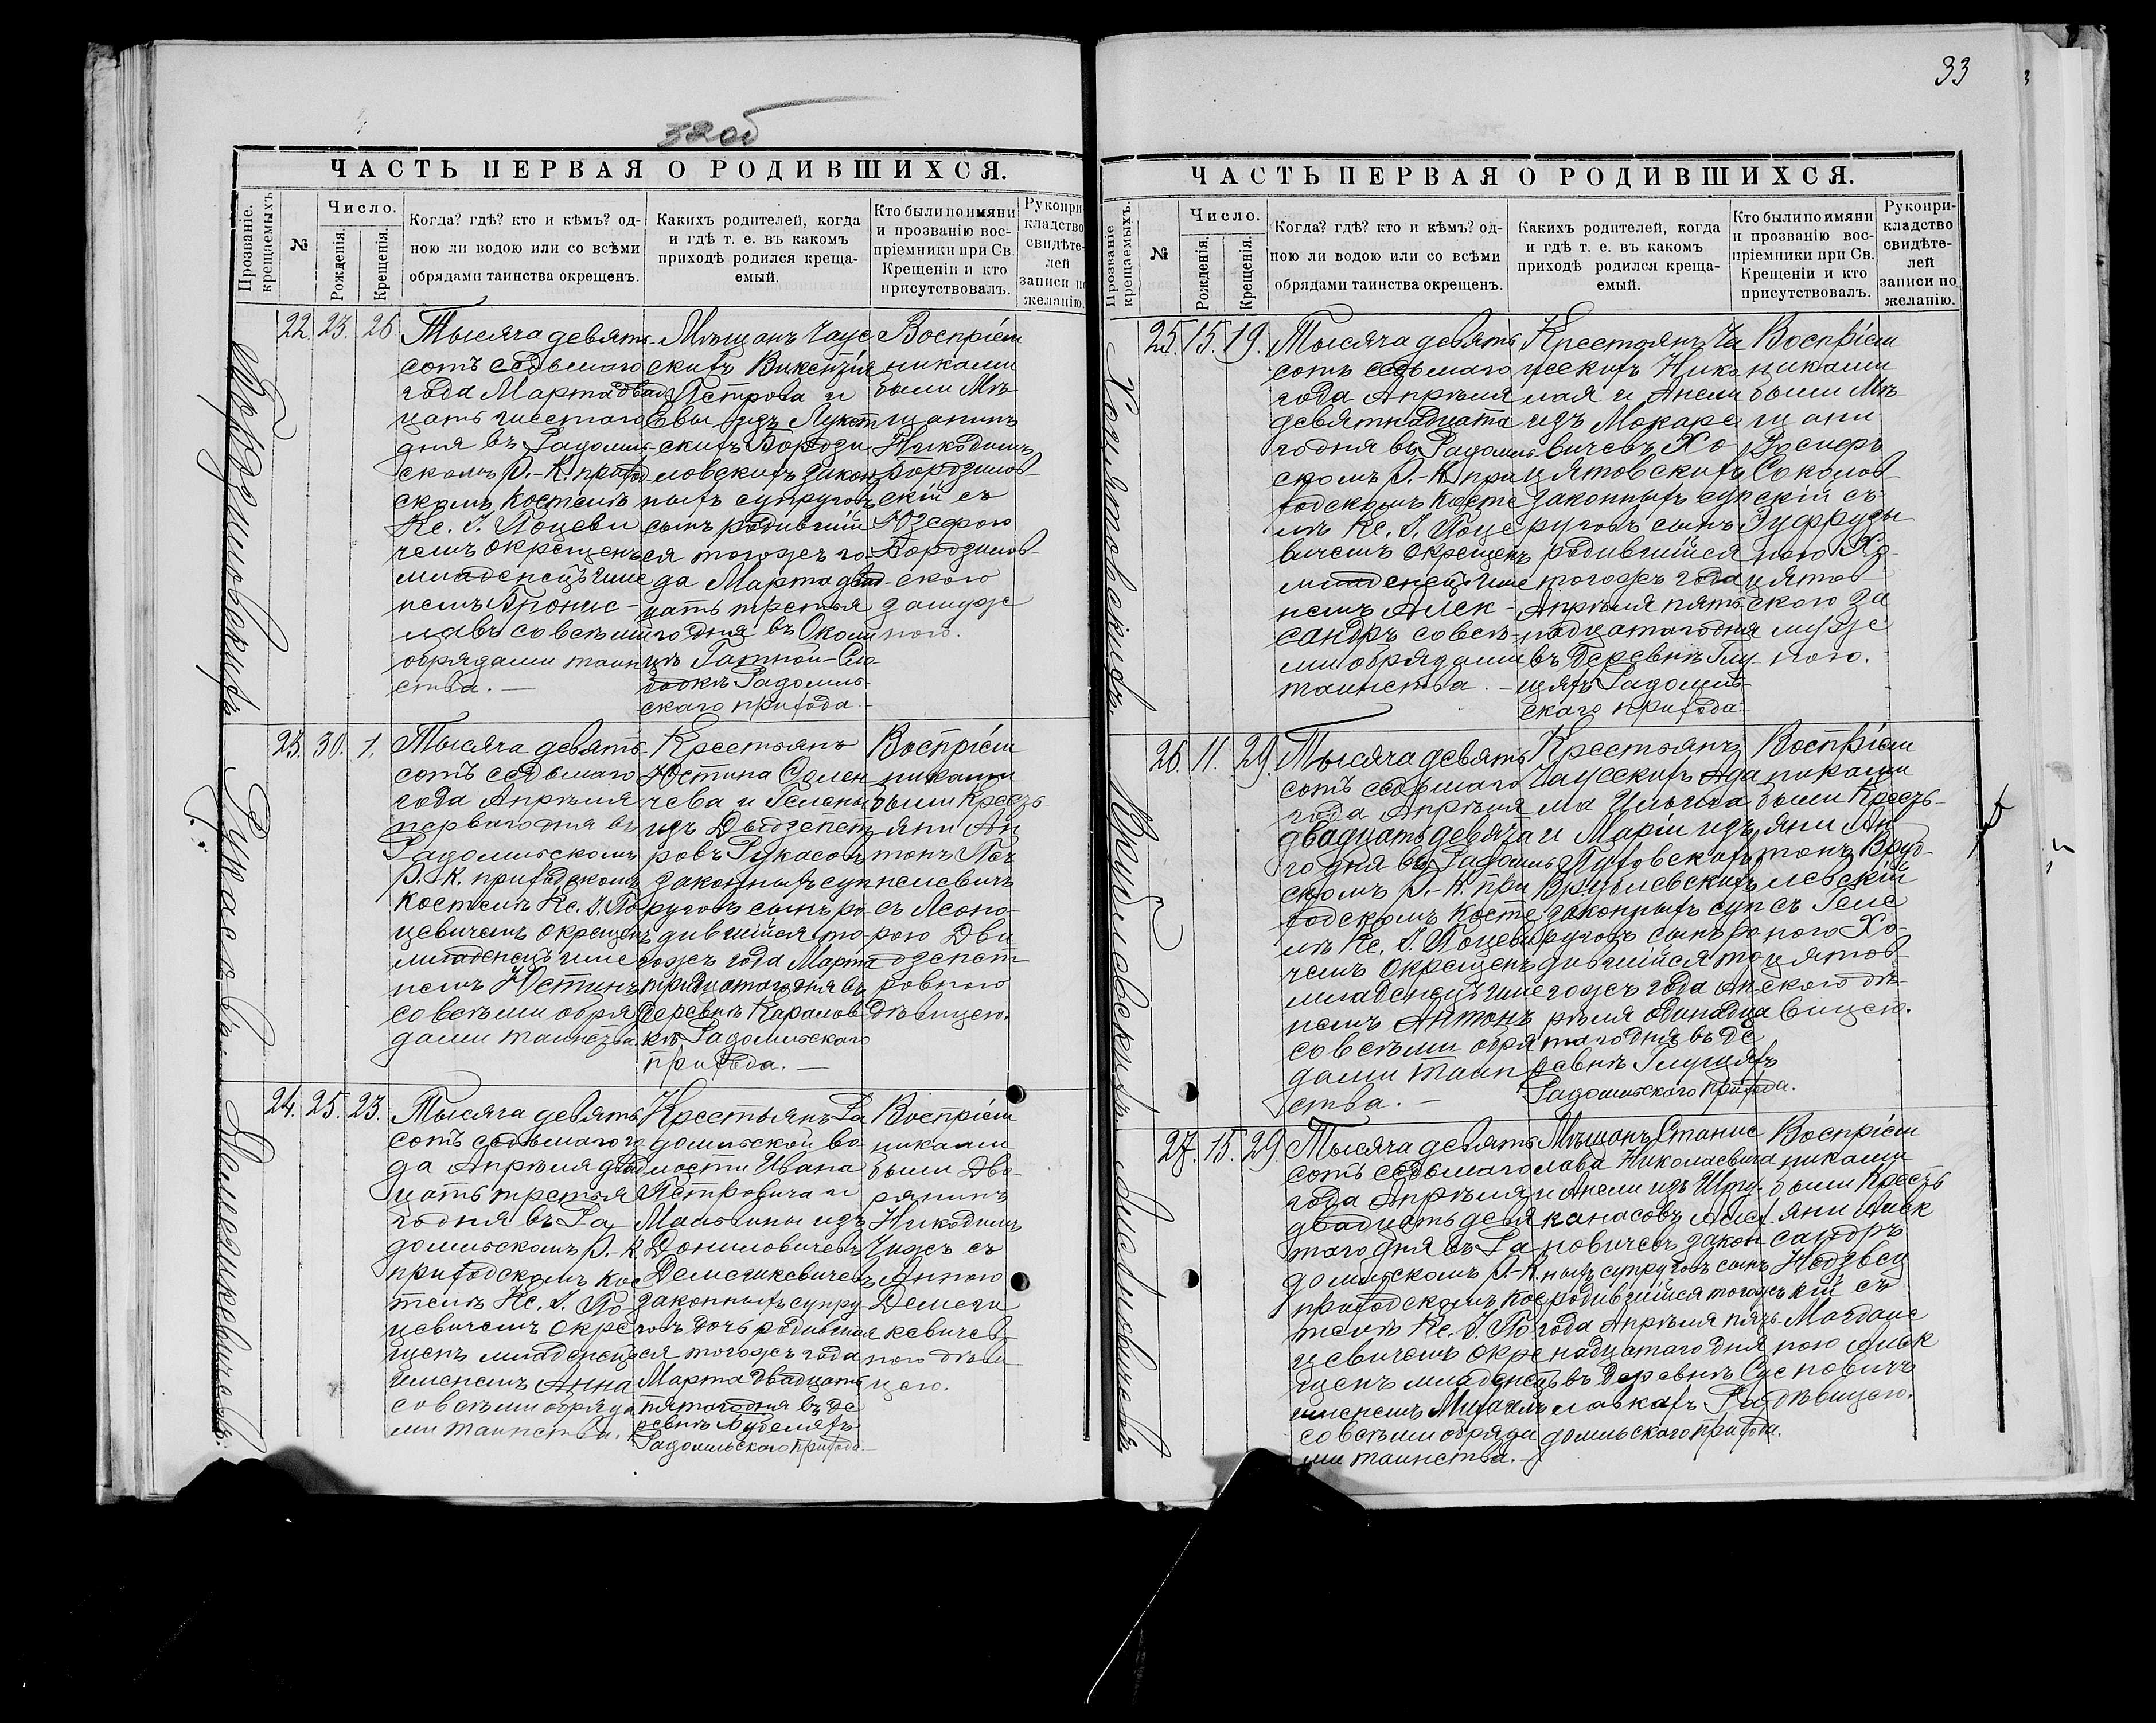 32об
ЧАСТЬ ПЕРВАЯ О РОДИВШИХСЯ.
Прозваніе крещаемыхъ.
№
Число.
Рожденія.
Крещенія.
Когда? гдѣ? кто и кѣмъ? од-
ною ли водою или со всѣми
обрядами таинства окрещенъ.
Какихъ родителей, когда
и гдѣ т. е. въ какомъ
приходѣ родился креща-
емый.
Кто были по имяни
и прозванію вос-
пріемники при Св.
Крещеніи и кто
присутствовалъ.
Рукопри-
кладство
свидѣте-
лей
записи по
желанію.
22. 23. 26
Тысяча девять
сотъ седьмаго
года Марта двад
цать шестаго
дня въ Радомль-
скомъ Р.-К. приход
скомъ костелѣ
Кс. І. Поцеви
чемъ окрещенъ
младенецъ име
немъ Бронис-
лавъ со всѣми
обрядами таин
ства. —
Мѣщанъ Чаус
скихъ Викентія
Петрова и
Евы изъ
скихъ Бородзи
ловскихъ закон
ныхъ супруговъ
сынъ родивший
ся тогожъ го
да Марта двад
цать третья
го дня въ Околи
цѣ Гатной-Сло-
бодкѣ Радомль-
скаго прихода.-
Воспріем
никами
были Мѣ-
щанинъ
Никодимъ
Бородзилов-
скій съ
Юзефою
Бородзилов-
скою
замуже
ною.
23. 30. 1.
Рукасовъ.
Тысяча девять
сотъ седьмаго
года Апрѣля
перваго дня въ
Радомльскомъ
Р.-К. приходскомъ
костелѣ Кс. І. По
цевичемъ окрещенъ
младенецъ име
немъ Юстинъ
со всѣми обря
дами таинства.
Крестьянъ
Юстина Семен
чева и Гелены
изъ
ровъ Рукасовъ
законныхъ суп
руговъ сынъ ро
дившійся то
гожъ года Марта
тридцатаго дня въ
деревнѣ Карамов
кѣ Радомльскаго
прихода. —
Воспріем
никами
были Кресть
яни Ан
тонъ Пет
келевичъ
съ Леоно-
рою Дви
дзепет
ровною
дѣвицею.
24. 25. 23.
Тысяча девять
сотъ седьмаго го
да Апрѣля двад
цать третья
го дня въ Ра
домльскомъ Р.-К.
приходскомъ кос
телѣ Кс. І. По
цевичемъ окре
щенъ младенецъ
именемъ Анна
со всѣми обряда
ми таинства.
Крестьянъ Ра
домльской во
лости Ивана
Петровича и
Мальвины изъ
Даниловичевъ
Демешкевичевъ
законныхъ супру
говъ дочь родившая
ся тогожъ года
Марта двадцать
пятаго дня въ де
ревнѣ
Радомльскаго прихода.-
Воспріем
никами
были Дво-
рянинъ
Никодимъ
Чижъ съ
Анною
Демеш
кевичев-
ною дѣви
цею.
33
ЧАСТЬ ПЕРВАЯ О РОДИВШИХСЯ.
Прозваніе крещаемыхъ.
№
Число.
Рожденія.
Крещенія.
Когда? гдѣ? кто и кѣмъ? од-
ною ли водою или со всѣми
обрядами таинства окрещенъ.
Какихъ родителей, когда
и гдѣ т. е. въ какомъ
приходѣ родился креща-
емый.
Кто были по имяни
и прозванію вос-
пріемники при Св.
Крещеніи и кто
присутствовалъ.
Рукопри-
кладство
свидѣте-
лей
записи по
желанію.
25. 15. 19.
Хоцятовскихъ.
Тысяча девять
сотъ седьмаго
года Апрѣля
девятнадцата
го дня въ Радомль
скомъ Р.-К. при
ходскомъ косте
лѣ Кс. І. Поце
вичемъ окрещенъ
младенецъ име
немъ Алек-
сандръ со всѣ-
ми обрядами
таинства. —
Крестьянъ Ча
усскихъ Нико
лая и Анели
изъ Макаре
вичевъ Хо
цятовскихъ
законныхъ суп
руговъ сынъ
родившійся
тогожъ года
Апрѣля пят-
надцатаго дня
въ деревнѣ Глу-
щяхъ Радомль-
скаго прихода.-
Воспріем
никами
были Мѣ-
щани
Іосифъ
Соколов
скій съ
Эуфрузы
ною Хо-
цятов-
скою за
муже
ною.
26. 11. 29.
Врублевскихъ.
Тысяча девять
сотъ седьмаго
года Апрѣля
двадцать девята
го дня въ Радомль
скомъ Р.-К. при
ходскомъ косте
лѣ Кс. І. Поцеви
чемъ окрещенъ
младенецъ име
немъ Антонъ
со всѣми обря
дами таин
ства. —
Крестьянъ
Чаусскихъ Ада
ма Ильича
и Маріи изъ
Врублевскихъ
законныхъ суп
руговъ сынъ ро
дившійся то
гожъ года Ап
рѣля одинадца
таго дня въ де
ревнѣ Глущяхъ
Радомльскаго прихода.
Воспріем
никами
были Кресть-
яни Ан
тонъ Вруб-
левскій
съ Геле
ною Хо-
цятов-
скою дѣ-
вицею.
27. 15. 29.
Тысяча девять
сотъ седьмаго
года Апрѣля
двадцать девя
таго дня въ Ра
домльскомъ Р.-К.
приходскомъ кос
телѣ Кс. І. По
цевичемъ окре
щенъ младенецъ
именемъ Михаилъ
со всѣми обряда
ми таинства. —
Мѣщанъ Станис
лава Николаевича
и Анели изъ
закон
ныхъ супруговъ сынъ
родившійся тогожъ
года Апрѣля пят-
надцатаго дня
въ деревнѣ
Ра
домльскаго прихода.
Воспріем
никами
были Кресть
яни Алек
сандръ
съ
дѣвицею.